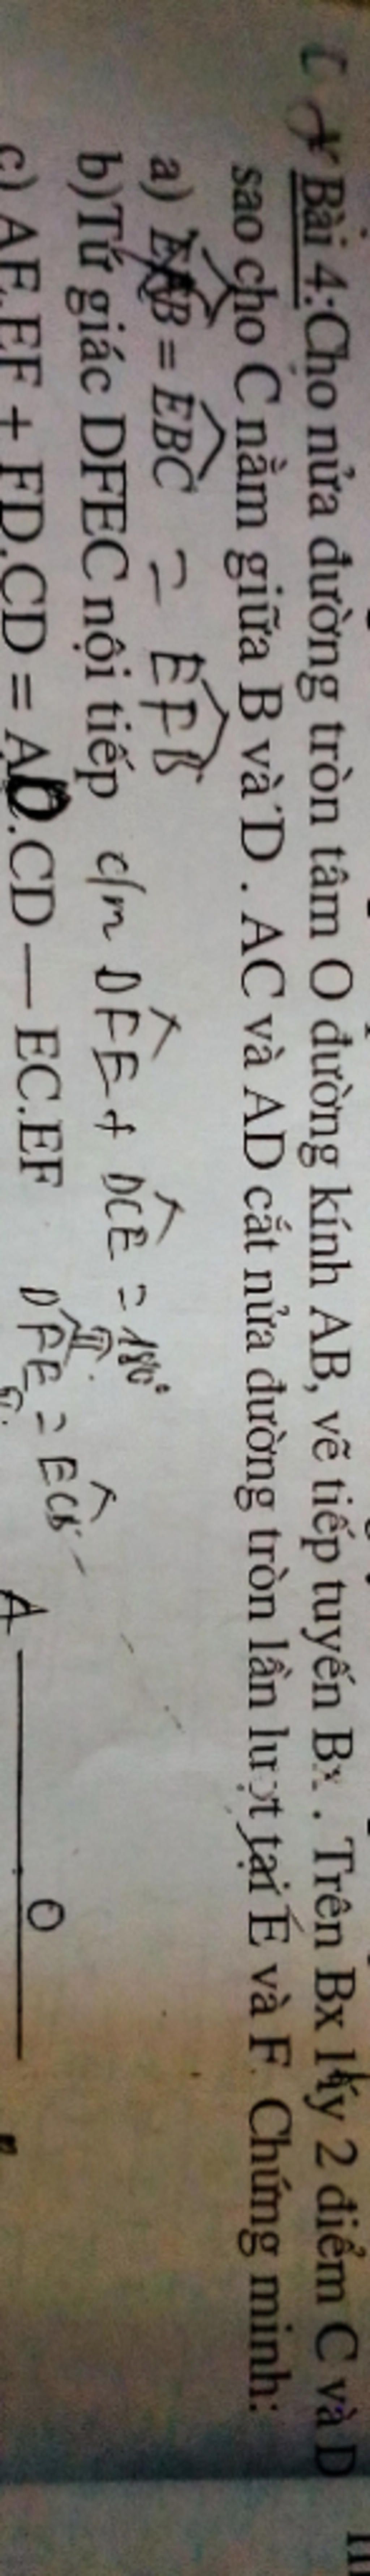 Bài 4: Cho nửa đường tròn tâm O đường kính AB, vẽ tiếp tuyến Bx . Trên Bx lấy 2 điểm C và D
sao cho C nằm giữa B và D . AC và AD cắt nửa đường tròn lần lượt tại E và F. Chứng minh:
a) EAB = EBC = EFB
b)Tứ giác DFEC nội tiếp c/m DFE + DCE = 180°
c) AE.EF + FD.CD = AD.CD — EC.EF DFE = ECB
A O